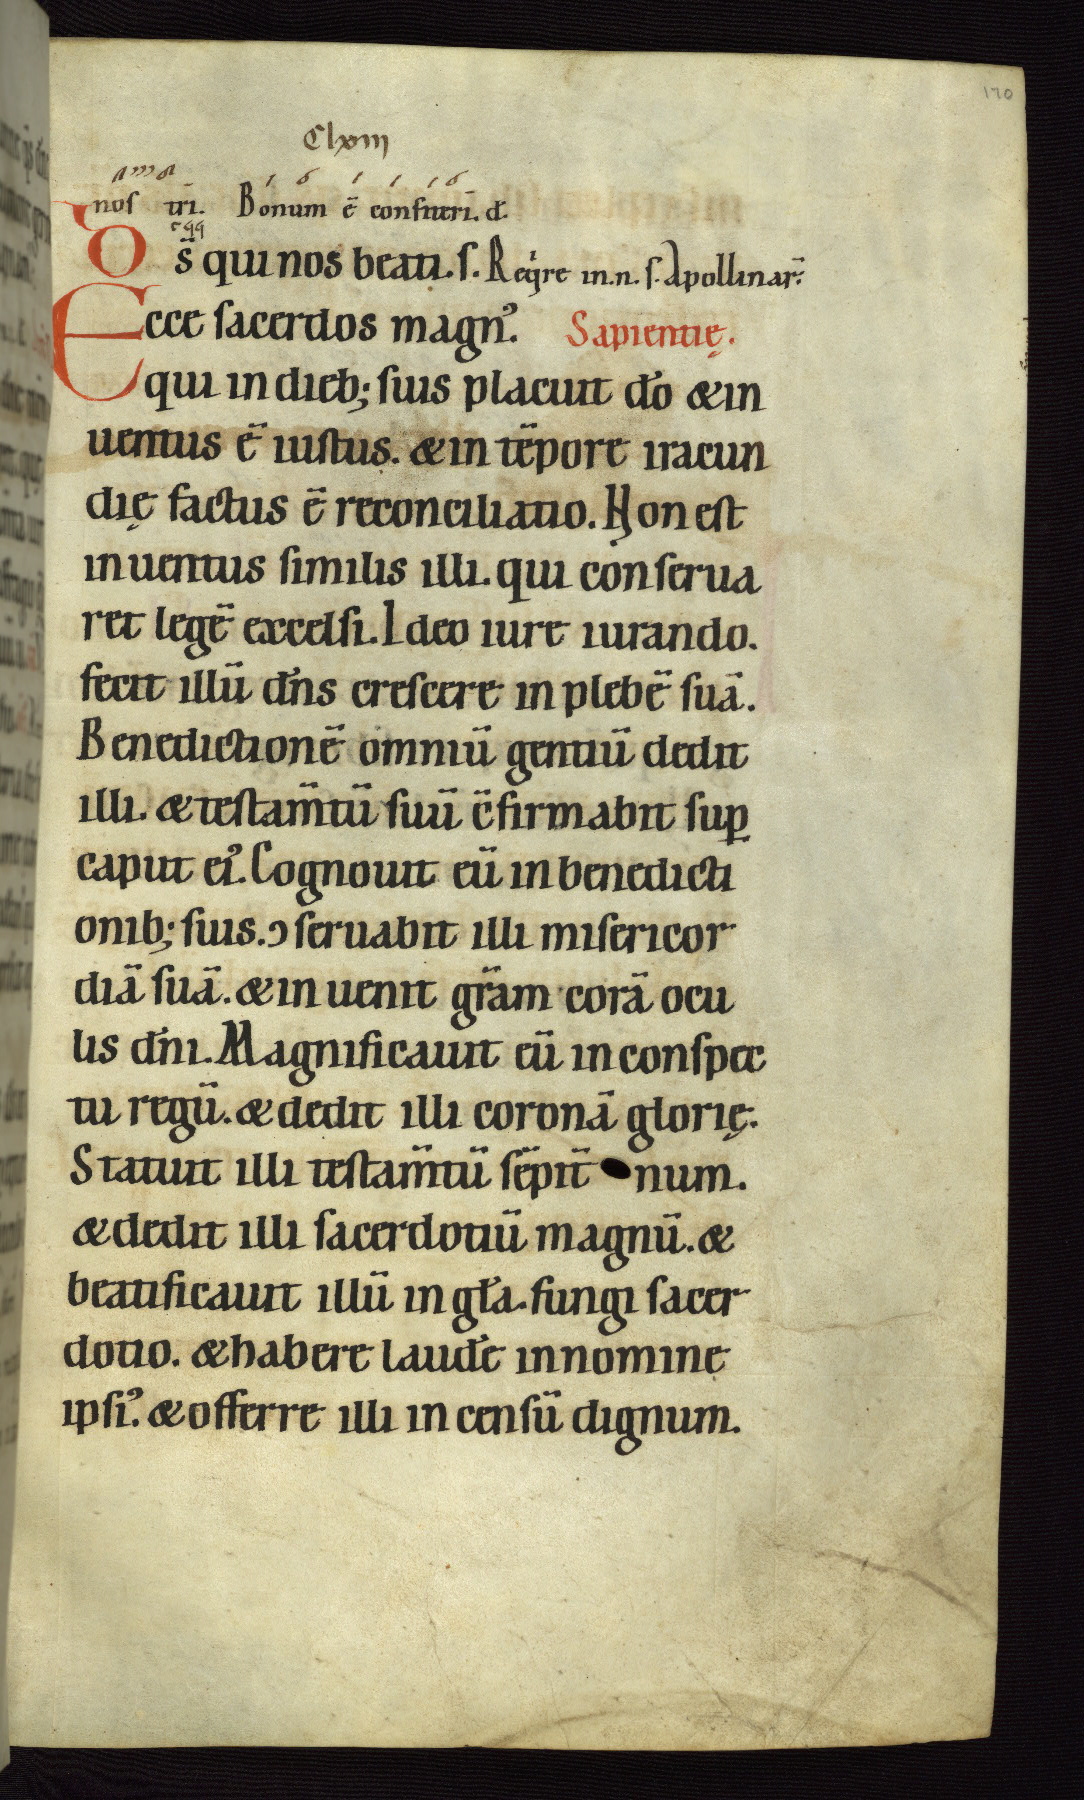 170
Clxiii
nos tri. Bonum ē confiteri. d.
Ds̄ qui nos beati. ſ. Reqͥre in. n. ſ. Apollinar̄.
Ecce ſacerdos magnꝰ. Sapientię.
qui in dieb; ſuis placuit do̅ &in
uentus ē iuſtus. &in tēpore iracun
dię factus ē reconciliatio. Non eſt
inuentus ſimilis illi. qui conſerua
ret legē excelſi. Ideo iure iurando.
fecit illū dn̅s creſcere in plebē ſuā.
Benedictionē omniū gentiū dedit
illi. &teſtam̅tū ſuū c̄firmabit ſuꝑ
caput eiꝰ. Cognouit eū in benedicti
onib; ſuis. ↄſeruabit illi miſericor
diā ſuā. &inuenit gr̅am corā ocu
lis dn̅i. Magnificauit eū in conſpec
tu regū. &dedit illi coronā glorię.
Statuit illi teſtam̅tū ſēpit̅num.
&dedit illi ſacerdotiū magnū. &
beatificauit illū in gl̅a. fungi ſacer
dotio. &habere laudē in nomine
ipſiꝰ. &offerre illi incenſū dignum.